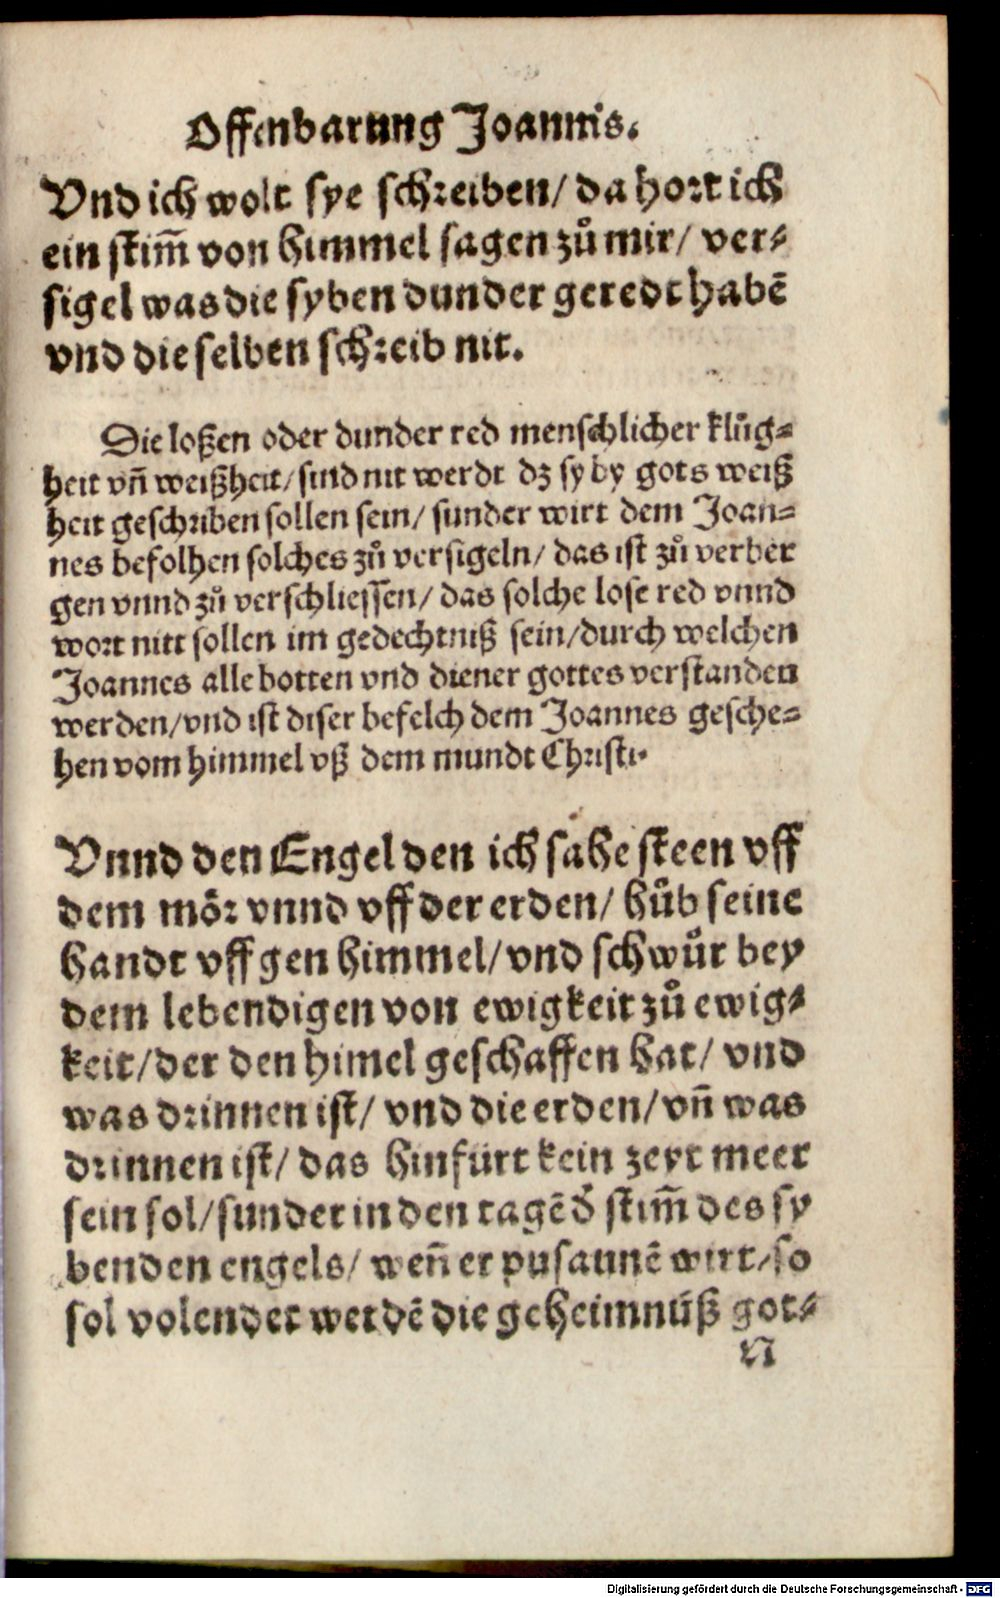 Offenbarung Joannis.
Vnd ich wolt sye schreiben/ da hort ich
ein stim̃ von himmel sagen zů mir/ ver⸗
sigel was die syben dunder geredt habẽ
vnd die selben schreib nit.
Die loßen oder dunder red menschlicher klůg⸗
heit vñ weißheit/ sind nit werdt dz sy by gots weiß
heit geschriben sollen sein/ sunder wirt dem Joan⸗
nes befolhen solches zů versigeln/ das ist zů verber
gen vnnd zů verschliessen/ das solche lose red vnnd
wort nitt sollen im gedechtniß sein/durch welchen
Joannes alle botten vnd diener gottes verstanden
werden/vnd ist diser befelch dem Joannes gesche⸗
hen vom himmel vß dem mundt Christi.
Vnnd den Engel den ich sahe steen vff
dem mör vnnd vff der erden/ hůb seine
handt vff gen himmel/ vnd schwůr bey
dem lebendigen von ewigkeit zů ewig⸗
keit/der den himel geschaffen hat/ vnd
was drinnen ist/ vnd die erden/ vñ was
drinnen ist/ das hinfürt kein zeyt meer
sein sol/sunder in den tagẽ d̕ stim̃ des sy
benden engels/ weñ er pusaunẽ wirt/ so
sol volendet werdẽ die geheimnüß got⸗
N
Digitalisierung gefördert durch die Deutsche Forschungsgemeinschaft - DFG